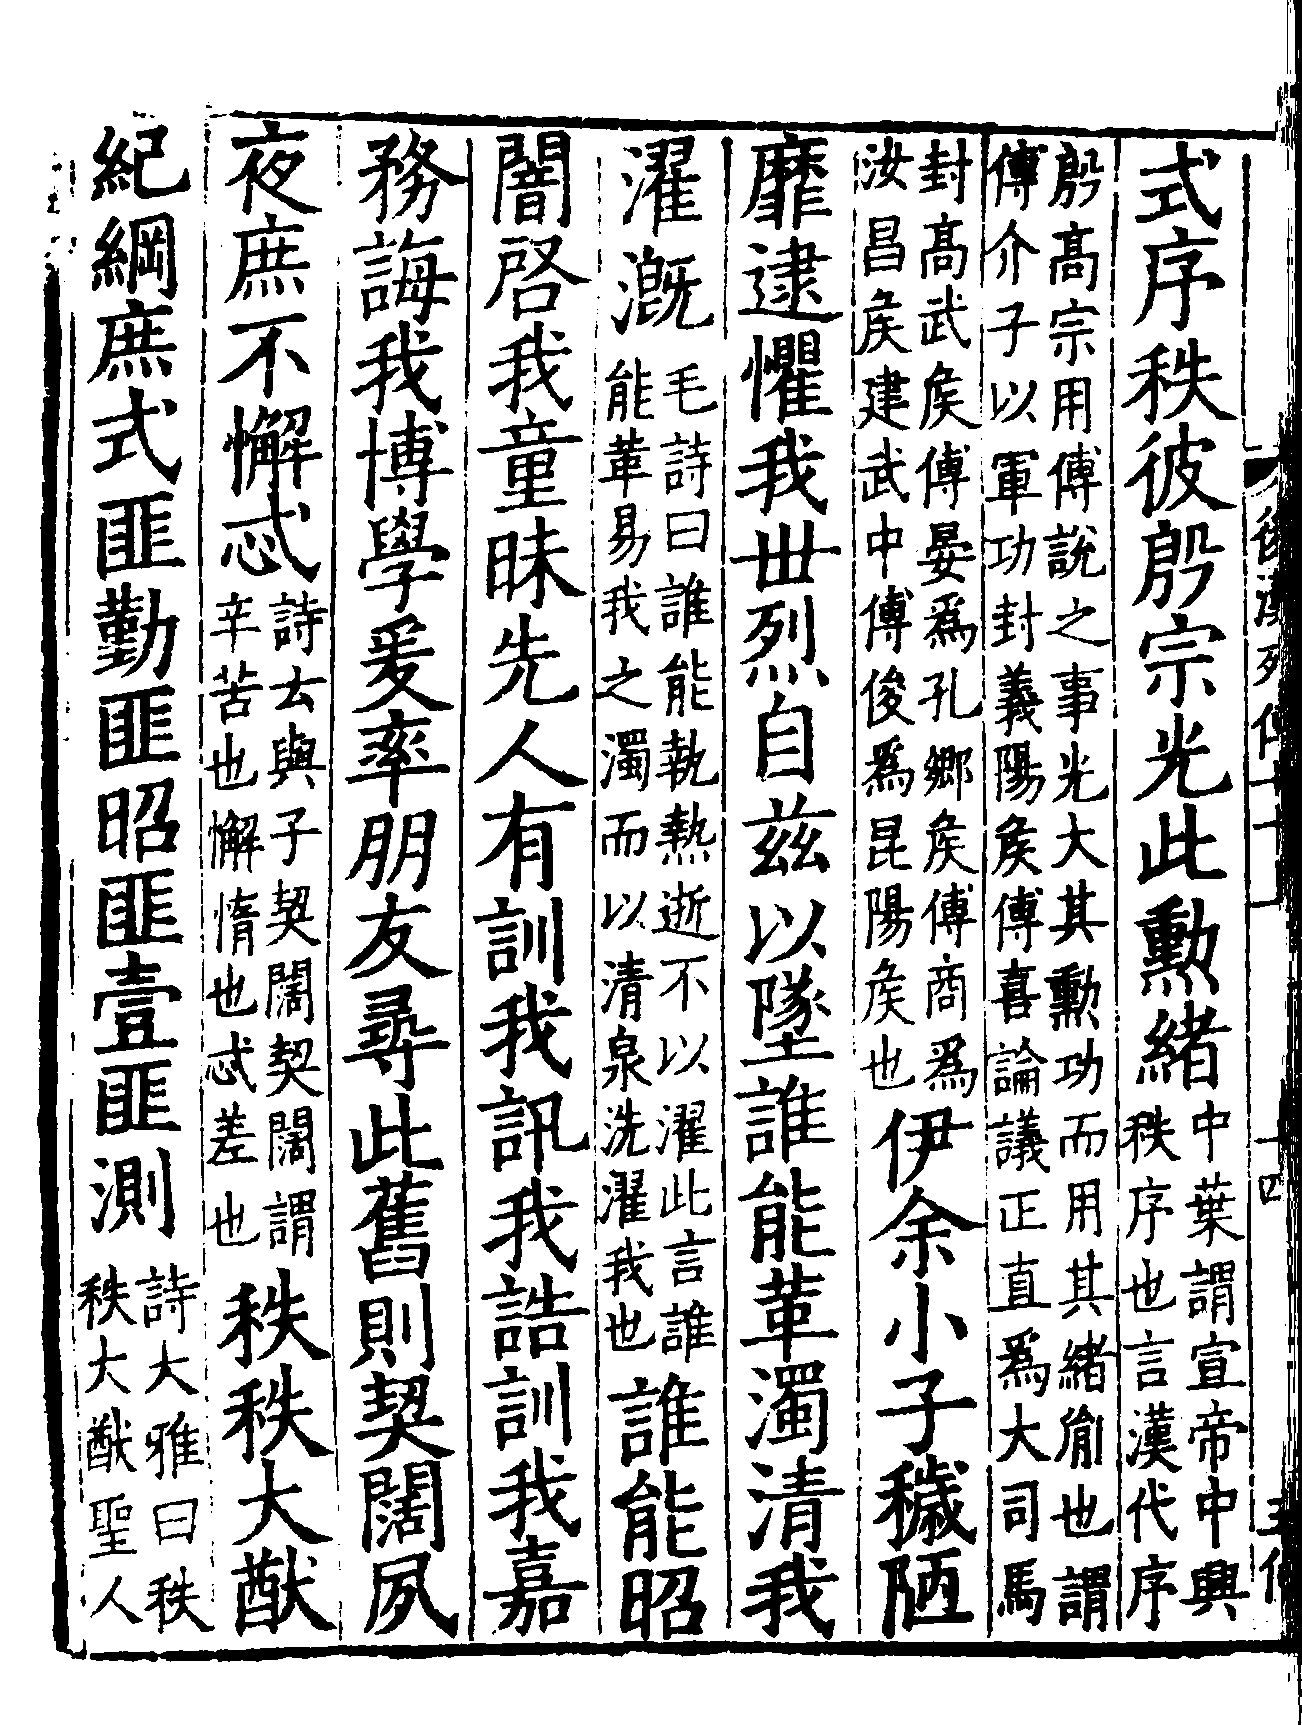 式序秩彼殷宗光此勲緒中葉謂宣帝中興秩序也言漢代序
殷髙宗用傅說之事光大其勲功而用其緒胤也謂傅介子以軍功封義陽矦傅喜論議正直爲大司馬
封髙武矦傅晏爲孔郷矦傅商爲汝昌矦建武中傅俊爲昆陽矦也伊余小子穢陋
靡逮懼我丗烈自兹以墜誰能革濁清我
濯溉毛詩曰誰能執熱逝不以濯此言誰能革易我之濁而以清泉洗濯我也誰能昭
闇啓我童昧先人有訓我訊我誥訓我嘉
務誨我博學爰率朋友尋此舊則契闊夙
夜庶不懈忒詩云與子契闊契闊謂辛苦也懈惰也忒差也秩秩大猷
紀綱庶式匪勤匪昭匪壹匪測詩大雅曰秩秩大猷聖人